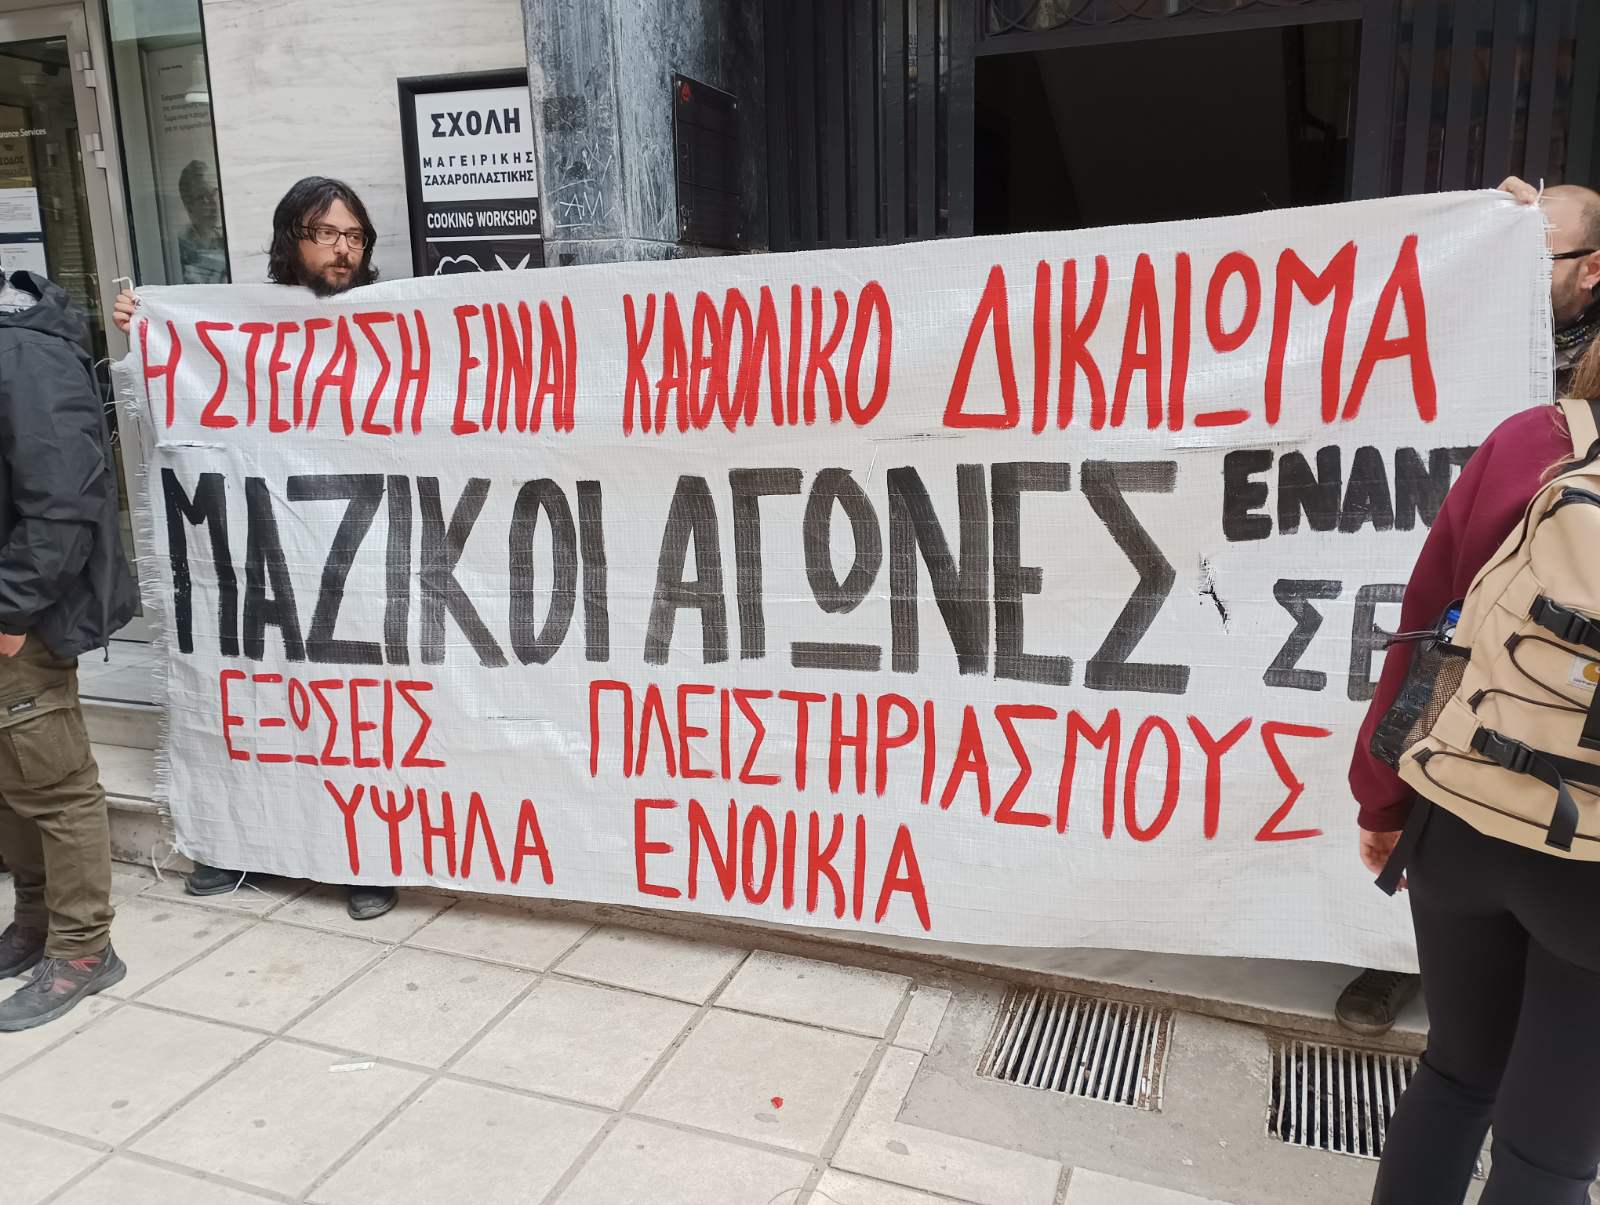 ΣΧΟΛΗ
ΜΑΓΕΙΡΙΚΗΣ
ΖΑΧΑΡΟΠΛΑΣΤΙΚΗΣ
COOKING WORKSHOP
Services
Η ΣΤΕΓΑΣΗ ΕΙΝΑΙ ΚΑΘΟΛΙΚΟ ΔΙΚΑΙΩΜΑ
ΜΑΖΙΚΟΙ ΑΓΩΝΕΣ ΕΝΑΝΤ
ΣΕ
ΕΞΩΣΕΙΣ ΠΛΕΙΣΤΗΡΙΑΣΜΟΥΣ
ΥΨΗΛΑ ΕΝΟΙΚΙΑ